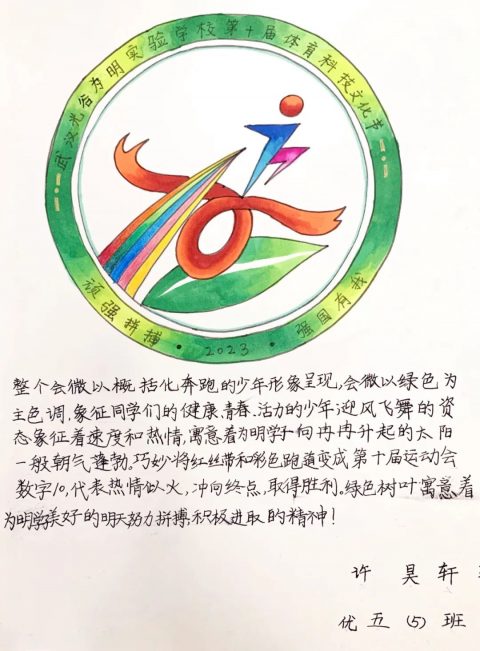 武汉光谷为明实验学校第十届体育科技文化节
顽强拼搏·2023·强国有我
整个会微以概括化奔跑的少年形象呈现,会微以绿色为
主色调.象征同学们的健康.青春.活力的少年迎风飞舞的姿
态象征着速度和热情,寓意着为明学子向冉冉升起的太阳
一般朝气蓬勃。巧妙将红丝带和彩色跑道变成第十届运动会
数字10,代表热情似火,冲向终点,取得胜利。绿色树叶寓意着
为明学美好的明天努力拼搏.积极进取的精神!
许昊轩
优五(5)班